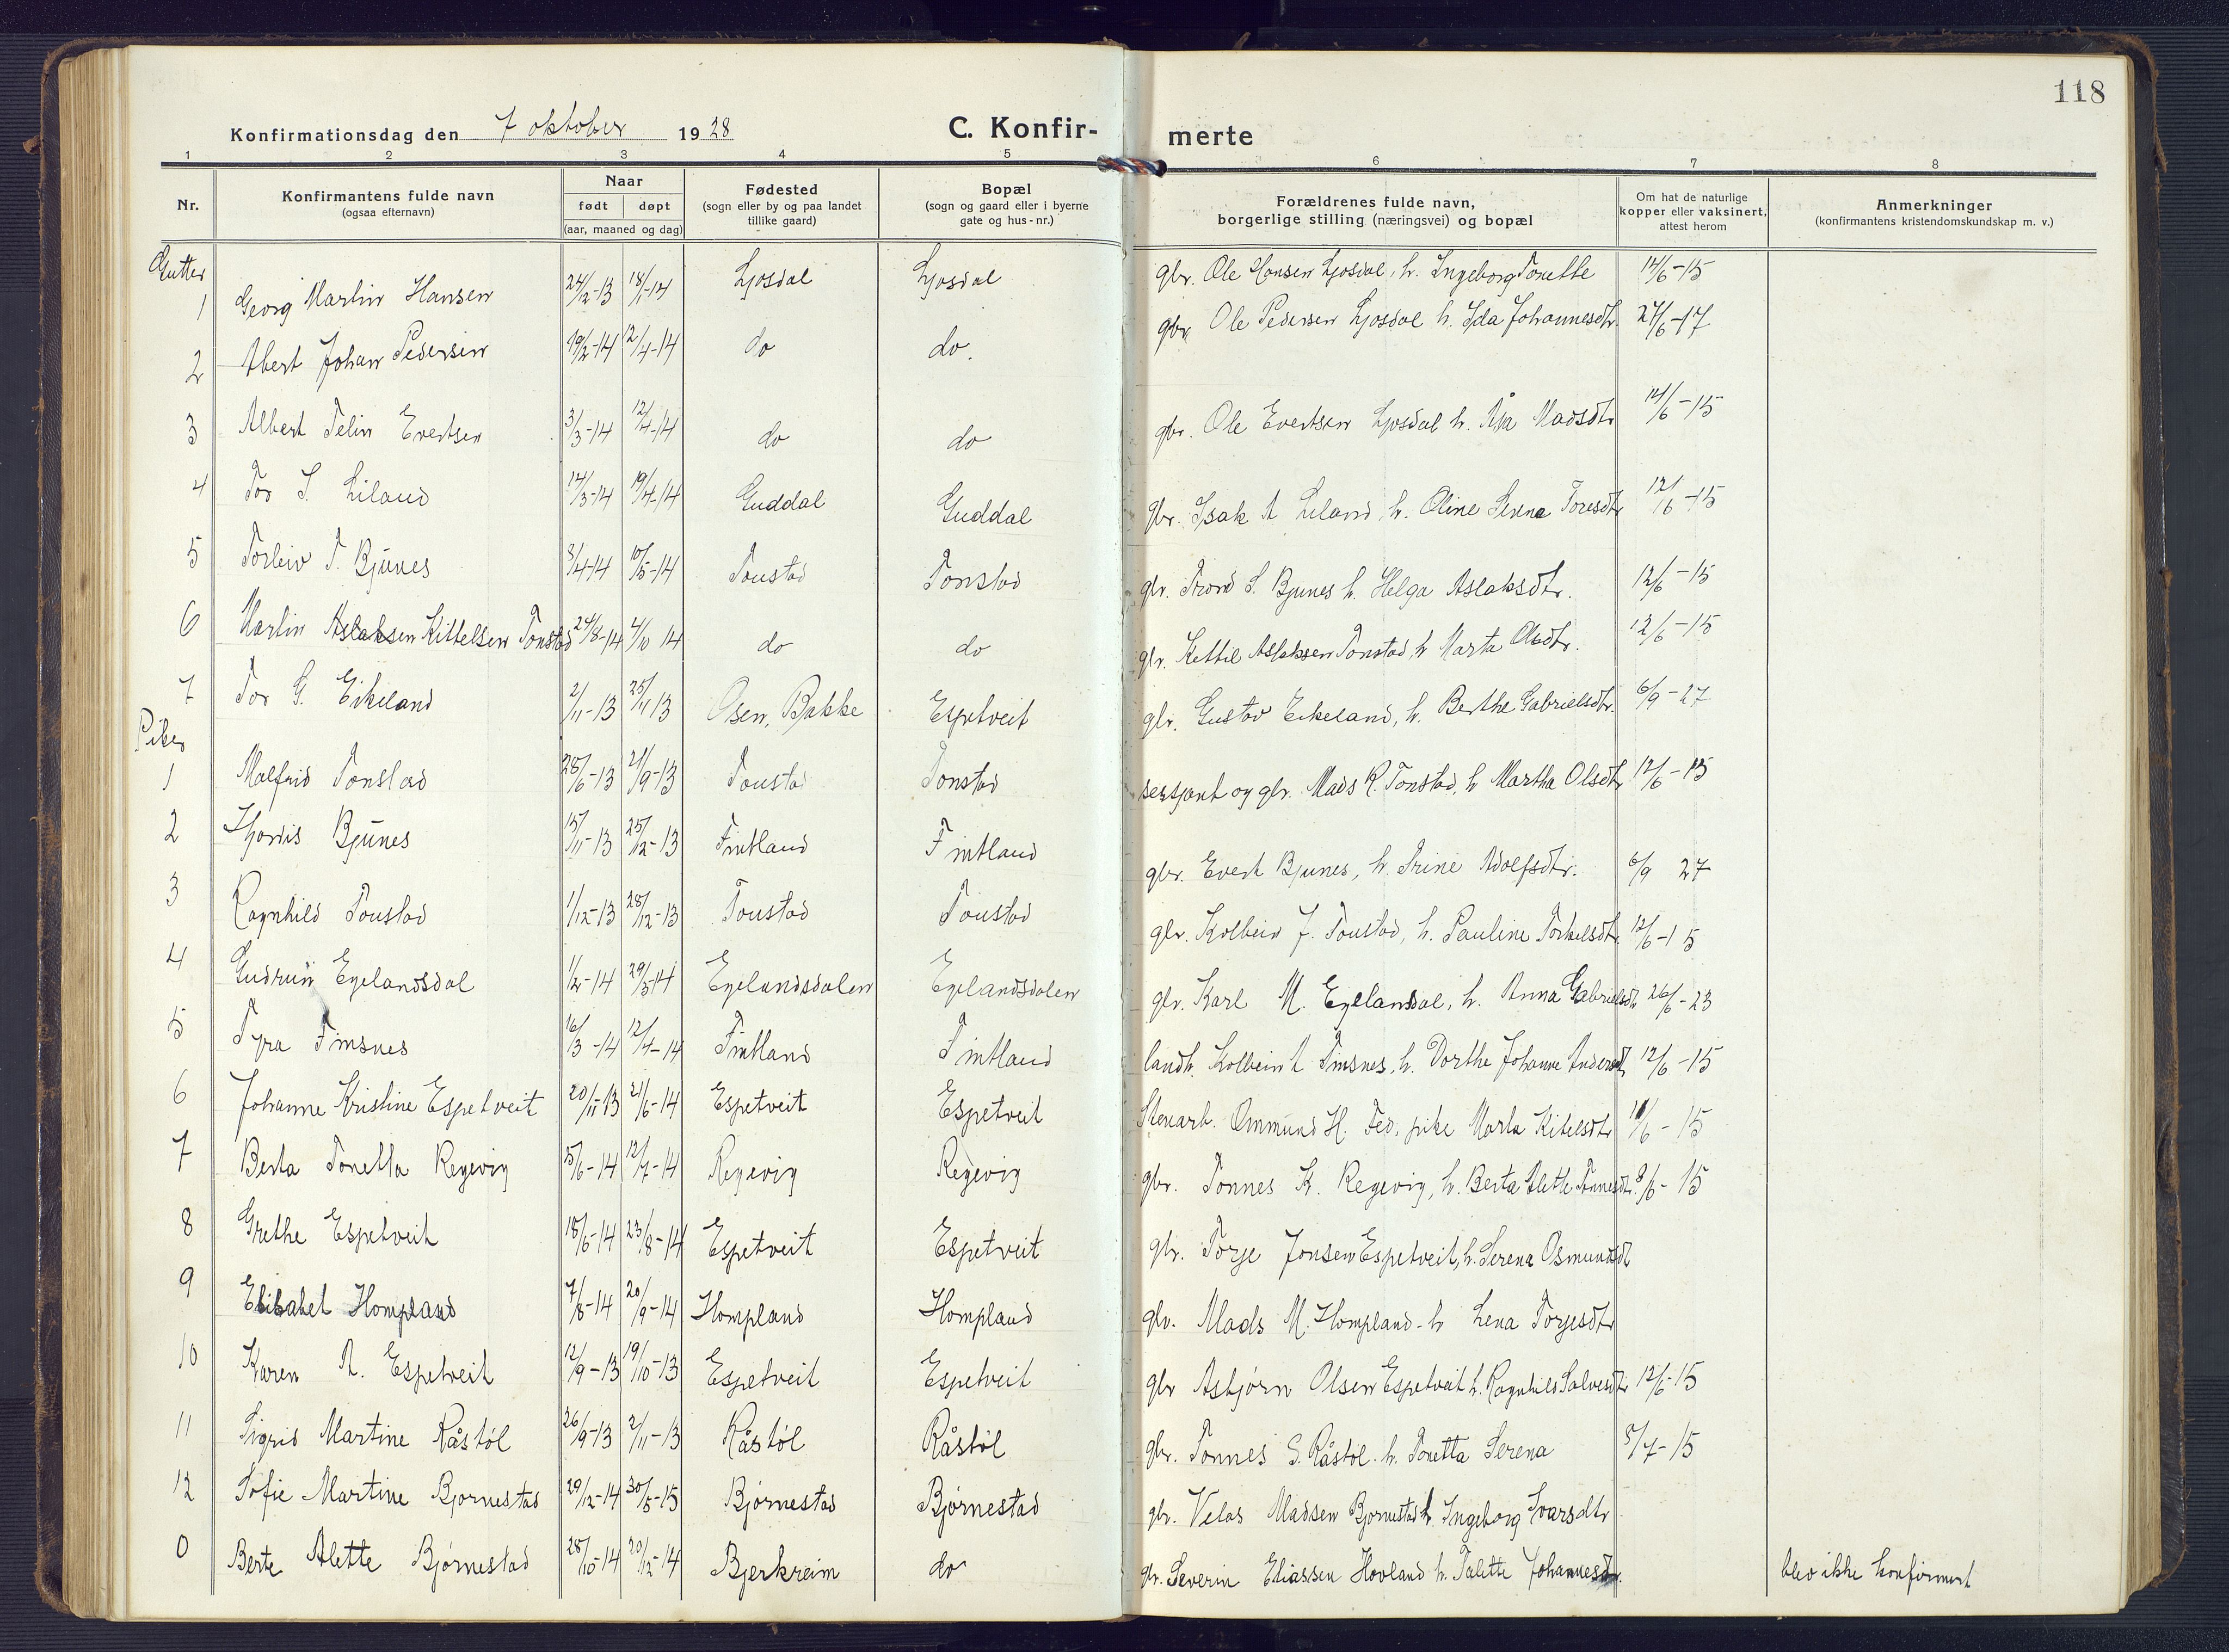 118
Konfirmationsdag den 7 oktober 1928
C. Konfir-merte
1 2 3 4 5 6 7 8
Nr.
Konfirmantens fulde navn
(ogsaa efternavn)
Naar
født døpt
(aar, maaned og dag)
Fødested
(sogn eller by og paa landet
tillike gaard)
Bopæl
(sogn og gaard eller i byerne
gate og hus-nr.)
Forældrenes fulde navn,
borgerlige stilling (næringsvei) og bopæl
Om hat de naturlige
kopper eller vaksinert,
attest herom
Anmerkninger
(konfirmantens kristendomskundskap m. v.)
Gutter
1 Georg Martin Hansen 24/12-13 18/1-14 Ljosdal Ljosdal gbr. Ole Hansen Ljosdal, h. Ingeborg Tonette 14/6-15
2 Abert Johan Pedersen 19/2-14 12/4-14 do do. gbr. Ole Pedersen Ljosdal h. Ida Johannesdtr. 27/6-17
3 Albert Telin Evertsen 3/3-14 12/4-14 do do gbr. Ole Evertsen Ljosdal h. Åsa Madsdtr 14/6-15
4 Tor I. Liland 14/3-14 19/4-14 Guddal Guddal gbr. Isak A Liland, h. Oline Serna Toresdtr 12/6-15
5 Torleiv T. Bjunes 3/4-14 10/5-14 Tonstad Tonstad gbr. Trond S. Bjunes h. Helga Aslaksdtr. 12/6-15
6 Martin Aslaksen Kittelsen Tonstad 24/8-14 4/10 14 do do gbr. Kettil Aslaksen Tonstad, h Marta Olsdtr. 12/6-15
7 Tor G. Eikeland 2/11-13 25/11 13 Osen, Bakke Espetveit gbr. Gustav Eikeland, h. Berthe Gabrielsdtr. 6/9-27
Piker
1 Malfrid Tonstad 28/6-13 21/9-13 Tonstad Tonstad sersjant og gbr. Mads R. Tonstad, h Martha Olsdtr 12/6-15
2 Hjordis Bjunes 15/11-13 25/12-13 Fintland Fintland gbr. Evert Bjunes, h. Trine Adolfsdtr. 6/9 27
3 Ragnhild Tonstad 1/12-13 28/12-13 Tonstad Tonstad gbr. Kolbein J. Tonstad, h. Pauline Torkelsdtr. 12/6-15
4 Gudrun Egelandsdal 1/2-14 29/3-14 Egelandsdalen Egelandsdalen gbr. Karl M. Egelandsdal, h. Anna Gabrielsdtr 26/6-23
5 Tyra Finsnes 16/3-14 12/4-14 Fintland Fintland landh. Kolbein L Finsnes, h. Dorthe Johanne Andersdt 12/6-15
6 Johanne Kristine Espetveit 20/11-13 21/6-14 Espetveit Espetveit Stenarb. Ommund H. Fed, pike Marta Kitelsdtr 11/6-15
7 Berta Tonetta Regevig 5/6-14 12/7-14 Regevig Regevig gbr. Tonnes K. Regevig, h. Berta Alette Tonnesdtr. 8/6-15
8 Grethe Espetveit 18/6-14 23/8-14 Espetveit Espetveit gbr. Torje Jonsen Espetveit, h. Serena Osmundsdt
9 Elisabet Hompland 7/8-14 20/9-14 Hompland Hompland gbr. Mads M. Hompland - h Lena Torjesdtr
10 Karen A. Espetveit 12/9-13 19/10-13 Espetveit Espetveit gbr Asbjørn Olsen Espetveit h. Ragnhild Salvesdtr 12/6-15
11 Sigrid Martine Råstøl 26/9-13 2/11-13 Råstøl Råstøl gbr. Tonnes S. Råstøl. h. Tonetta Serena 5/7-15
12 Sofie Martine Bjornestad 29/12-14 30/5-15 Bjørnestad Bjørnestad gbr. Velas Madsen Bjornestad h. Ingeborg Ivarsdtr
0 Berte Alette Bjørnestad 28/10-14 20/12-14 Bjerkreim do gbr. Severin Eliassen Hovland h. Talette Johannesdtr. blev ikke konfirmert